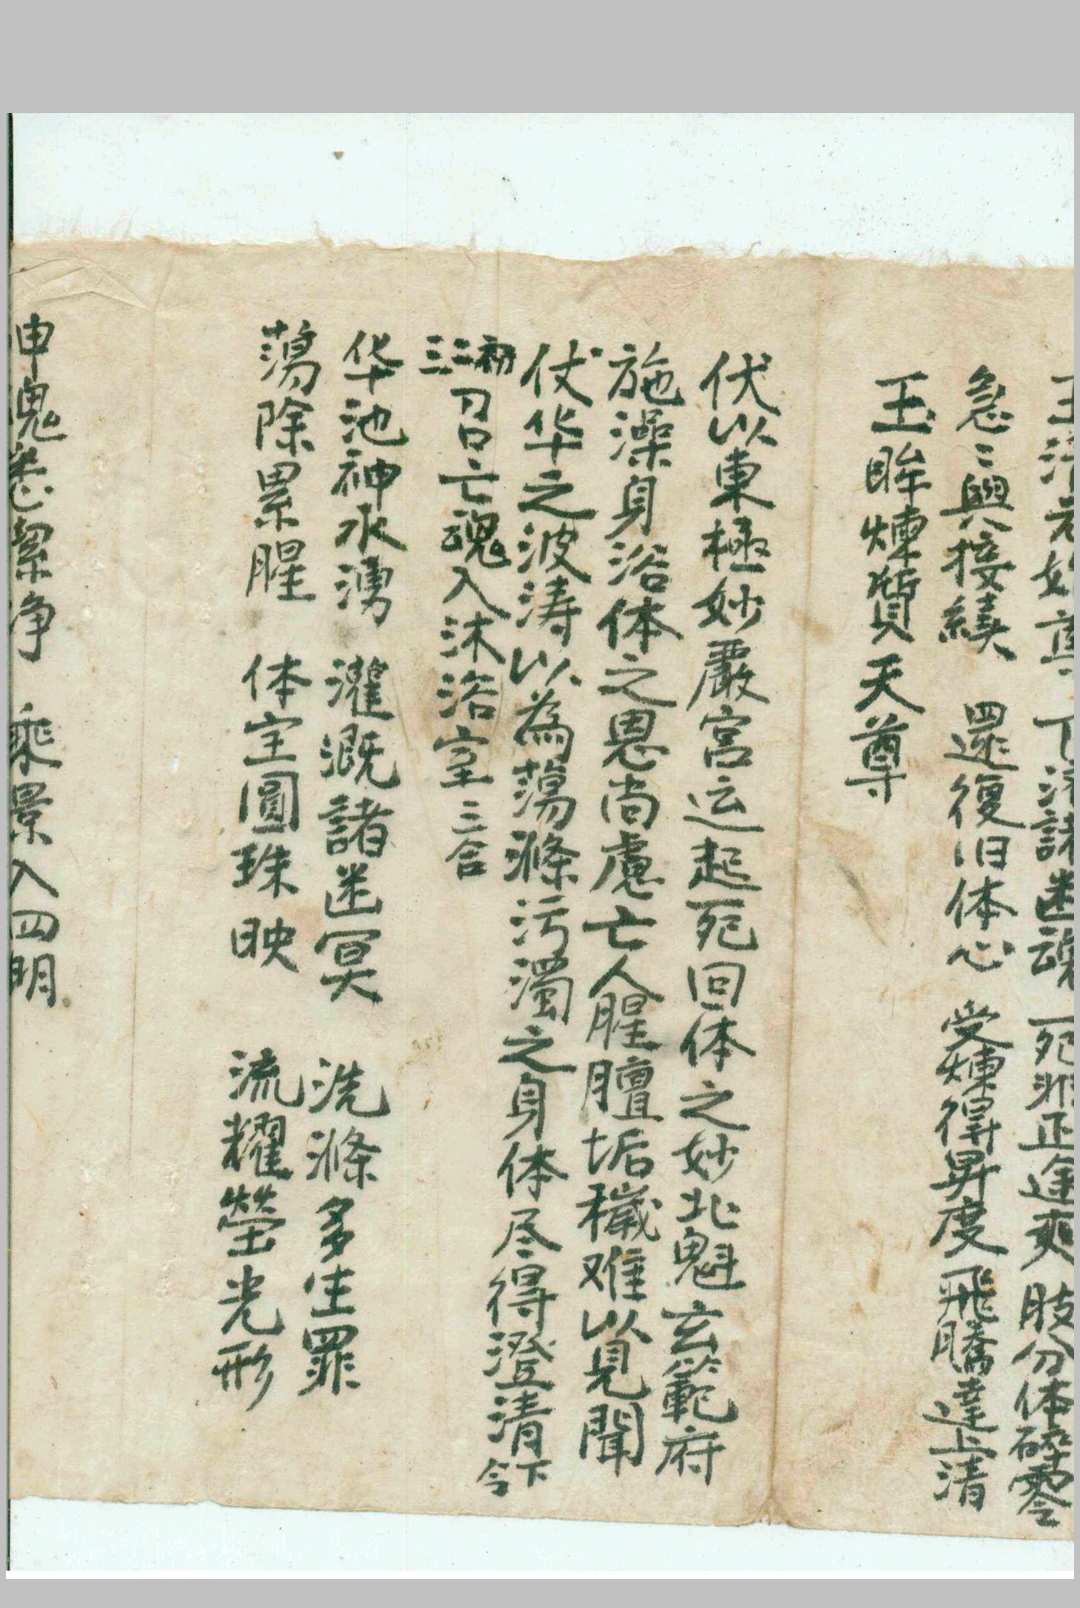 下済諸迷魂 死非正途爽 肢分体碎零
急〻與接續 還復旧体心 受煉得昇度 飛騰達上清
玉眸煉質天尊
伏以東極妙嚴宮运起死回体之妙北魁玄範府
施澡身浴体之恩尚慮亡人腥膻垢穢难以見聞
仗华之波涛以為蕩滌污濁之身体尽得澄清
初二三召亡魂入沐浴室三合
华池神水湧 濯溉諸迷冥 洗滌多生罪
蕩除累腥 体宝圓珠映 流耀螢光形
悉潔净 乘景入四明